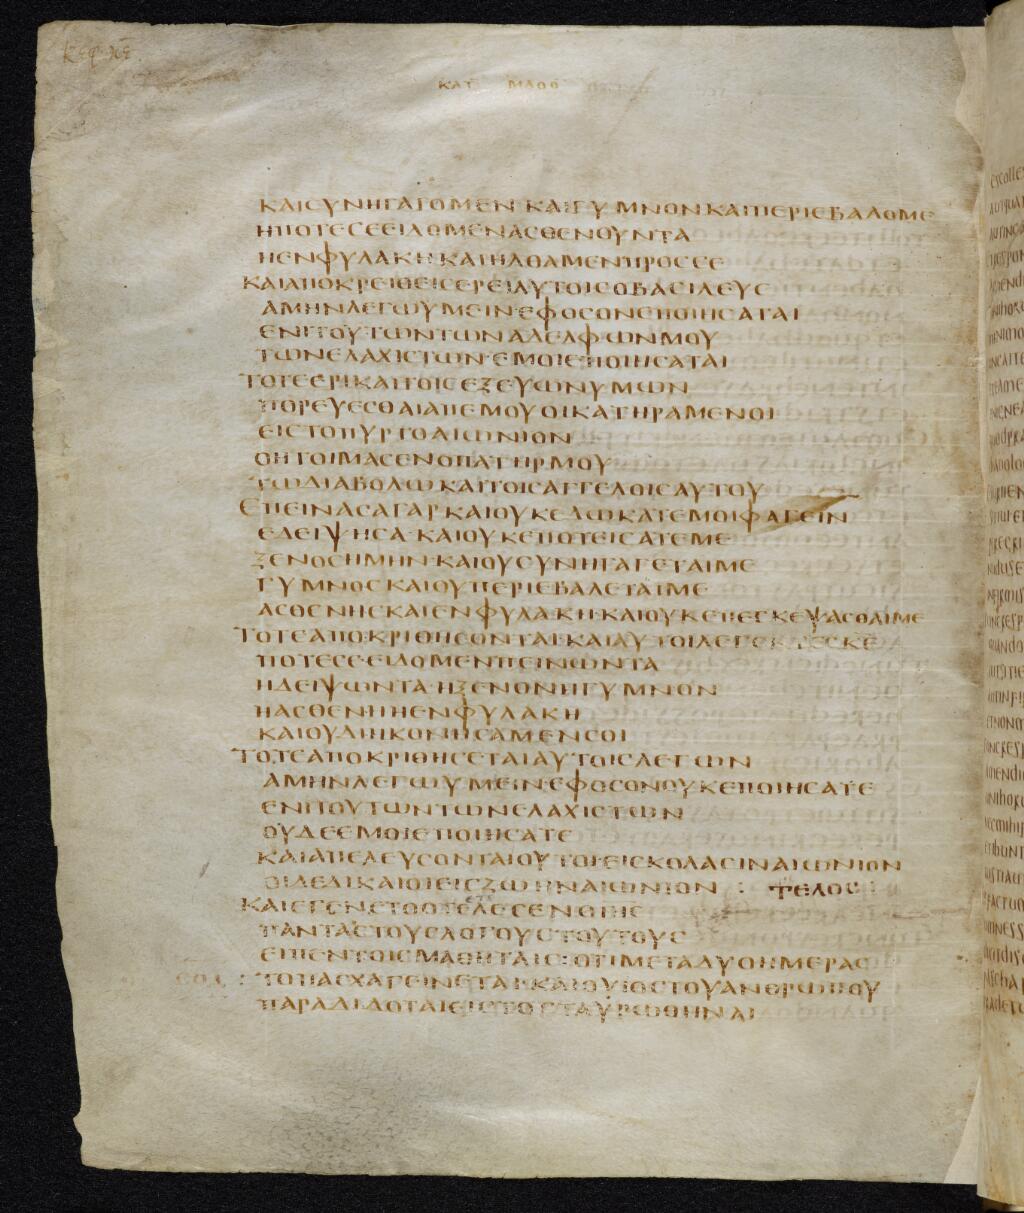 κεφ κε
ΚΑΤ ΜΑΘΘ
ΚΑΙCΥΝΗΓΑΓΟΜΕΝ ΚΑΙΓΥΜΝΟΝΚΑΙΠΕΡΙΕΒΑΛΟΜΕ
ΗΠΟΤΕCΕΕΙΔΟΜΕΝΑCΘΕΝΟΥΝΤΑ
ΗΕΝΦΥΛΑΚΗ ΚΑΙΗΛΘΑΜΕΝΠΡΟCCΕ
ΚΑΙΑΠΟΚΡΕΙΘΕΙCΕΡΕΙΑΥΤΟΙCΟΒΑCΙΛΕΥC
ΑΜΗΝΛΕΓΩΥΜΕΙΝΕΦΟCΟΝΕΠΟΙΗCΑΤΑΙ
ΕΝΙΤΟΥΤΩΝΤΩΝΑΔΕΛΦΩΝΜΟΥ
ΤΩΝΕΛΑΧΙCΤΩΝ ΕΜΟΙΕΠΟΙΗCΑΤΑΙ
ΤΟΤΕΕΡΙΚΑΙΤΟΙCΕΞΕΥΩΝΥΜΩΝ
ΠΟΡΕΥΕCΘΑΙΑΠΕΜΟΥΟΙΚΑΤΗΡΑΜΕΝΟΙ
ΕΙCΤΟΠΥΡΤΟΑΙΩΝΙΟΝ
ΟΗΤΟΙΜΑCΕΝΟΠΑΤΗΡΜΟΥ
ΤΩΔΙΑΒΟΛΩΚΑΙΤΟΙCΑΓΓΕΛΟΙCΑΥΤΟΥ
ΕΠΕΙΝΑCΑΓΑΡΚΑΙΟΥΚΕΔΩΚΑΤΕΜΟΙΦΑΓΕΙΝ
ΕΔΕΙΨΗCΑ ΚΑΙΟΥΚΕΠΟΤΕΙCΑΤΕΜΕ
ΞΕΝΟCΗΜΗΝ ΚΑΙΟΥCΥΝΗΓΑΓΕΤΑΙΜΕ
ΓΥΜΝΟCΚΑΙΟΥΠΕΡΙΕΒΑΛΕΤΑΙΜΕ
ΑCΘΕΝΗCΚΑΙΕΝΦΥΛΑΚΗ ΚΑΙΟΥΚΕΠΕCΚΕΨΑCΘΑΙΜΕ
ΤΟΤΕΑΠΟΚΡΙΘΗCΟΝΤΑΙΚΑΙΑΥΤΟΙΛΕΓΟΝΤΕCΚΕ
ΠΟΤΕCΕΕΙΔΟΜΕΝΠΕΙΝΩΝΤΑ
ΗΔΕΙΨΩΝΤΑ ΗΞΕΝΟΝΗΓΥΜΝΟΝ
ΗΑCΘΕΝΗΗΕΝΦΥΛΑΚΗ
ΚΑΙΟΥΔΙΗΚΟΝΗCΑΜΕΝCΟΙ
ΤΟΤΕΑΠΟΚΡΙΘΗCΕΤΑΙΑΥΤΟΙCΛΕΓΩΝ
ΑΜΗΝΛΕΓΩΥΜΕΙΝΕΦΟCΟΝΟΥΚΕΠΟΙΗCΑΤΕ
ΕΝΙΤΟΥΤΩΝΤΩΝΕΛΑΧΙCΤΩΝ
ΟΥΔΕΕΜΟΙΕΠΟΙΗCΑΤΕ
ΚΑΙΑΠΕΛΕΥCΟΝΤΑΙΟΥΤΟΙΕΙCΚΟΛΑCΙΝΑΙΩΝΙΟΝ
ΟΙΔΕΔΙΚΑΙΟΙΕΙCΖΩΗΝΑΙΩΝΙΟΝ : ΤΕΛΟC :
ΚΑΙΕΓΕΝΕΤΟΟΤΕΛΕCΕΝΟΙΗC
ΠΑΝΤΑCΤΟΥCΛΟΓΟΥCΤΟΥΤΟΥC
ΕΙΠΕΝΤΟΙCΜΑΘΗΤΑΙC:ΟΤΙΜΕΤΑΔΥΟΗΜΕΡΑC
ΤΟΠΑCΧΑΓΕΙΝΕΤΑΙ ΚΑΙΟΥΙΟCΤΟΥΑΝΘΡΩΠΟΥ
ΠΑΡΑΔΙΔΟΤΑΙΕΙCΤΟCΤΑΥΡΩΘΗΝΑΙ